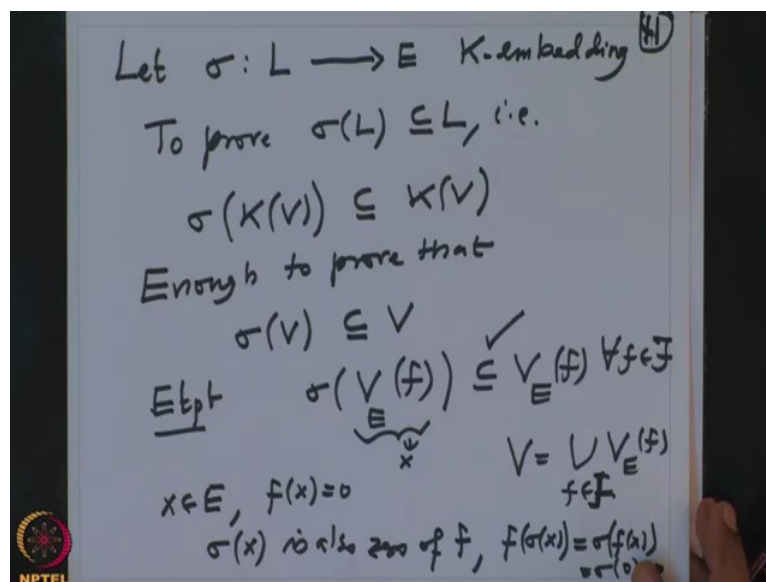 Let σ : L ⟶ E K-embedding
To prove σ(L) ⊆ L, i.e.
σ(K(V)) ⊆ K(V)
Enough to prove that
σ(V) ⊆ V
Etpt σ(V_E(f)) ⊆ V_E(f) ∀f∈F
x
V = ∪ V_E(f)
f∈F
x∈E, f(x)=0
σ(x) is also zero of f, f(σ(x)) = σ(f(x))
= σ(0)
NPTEL